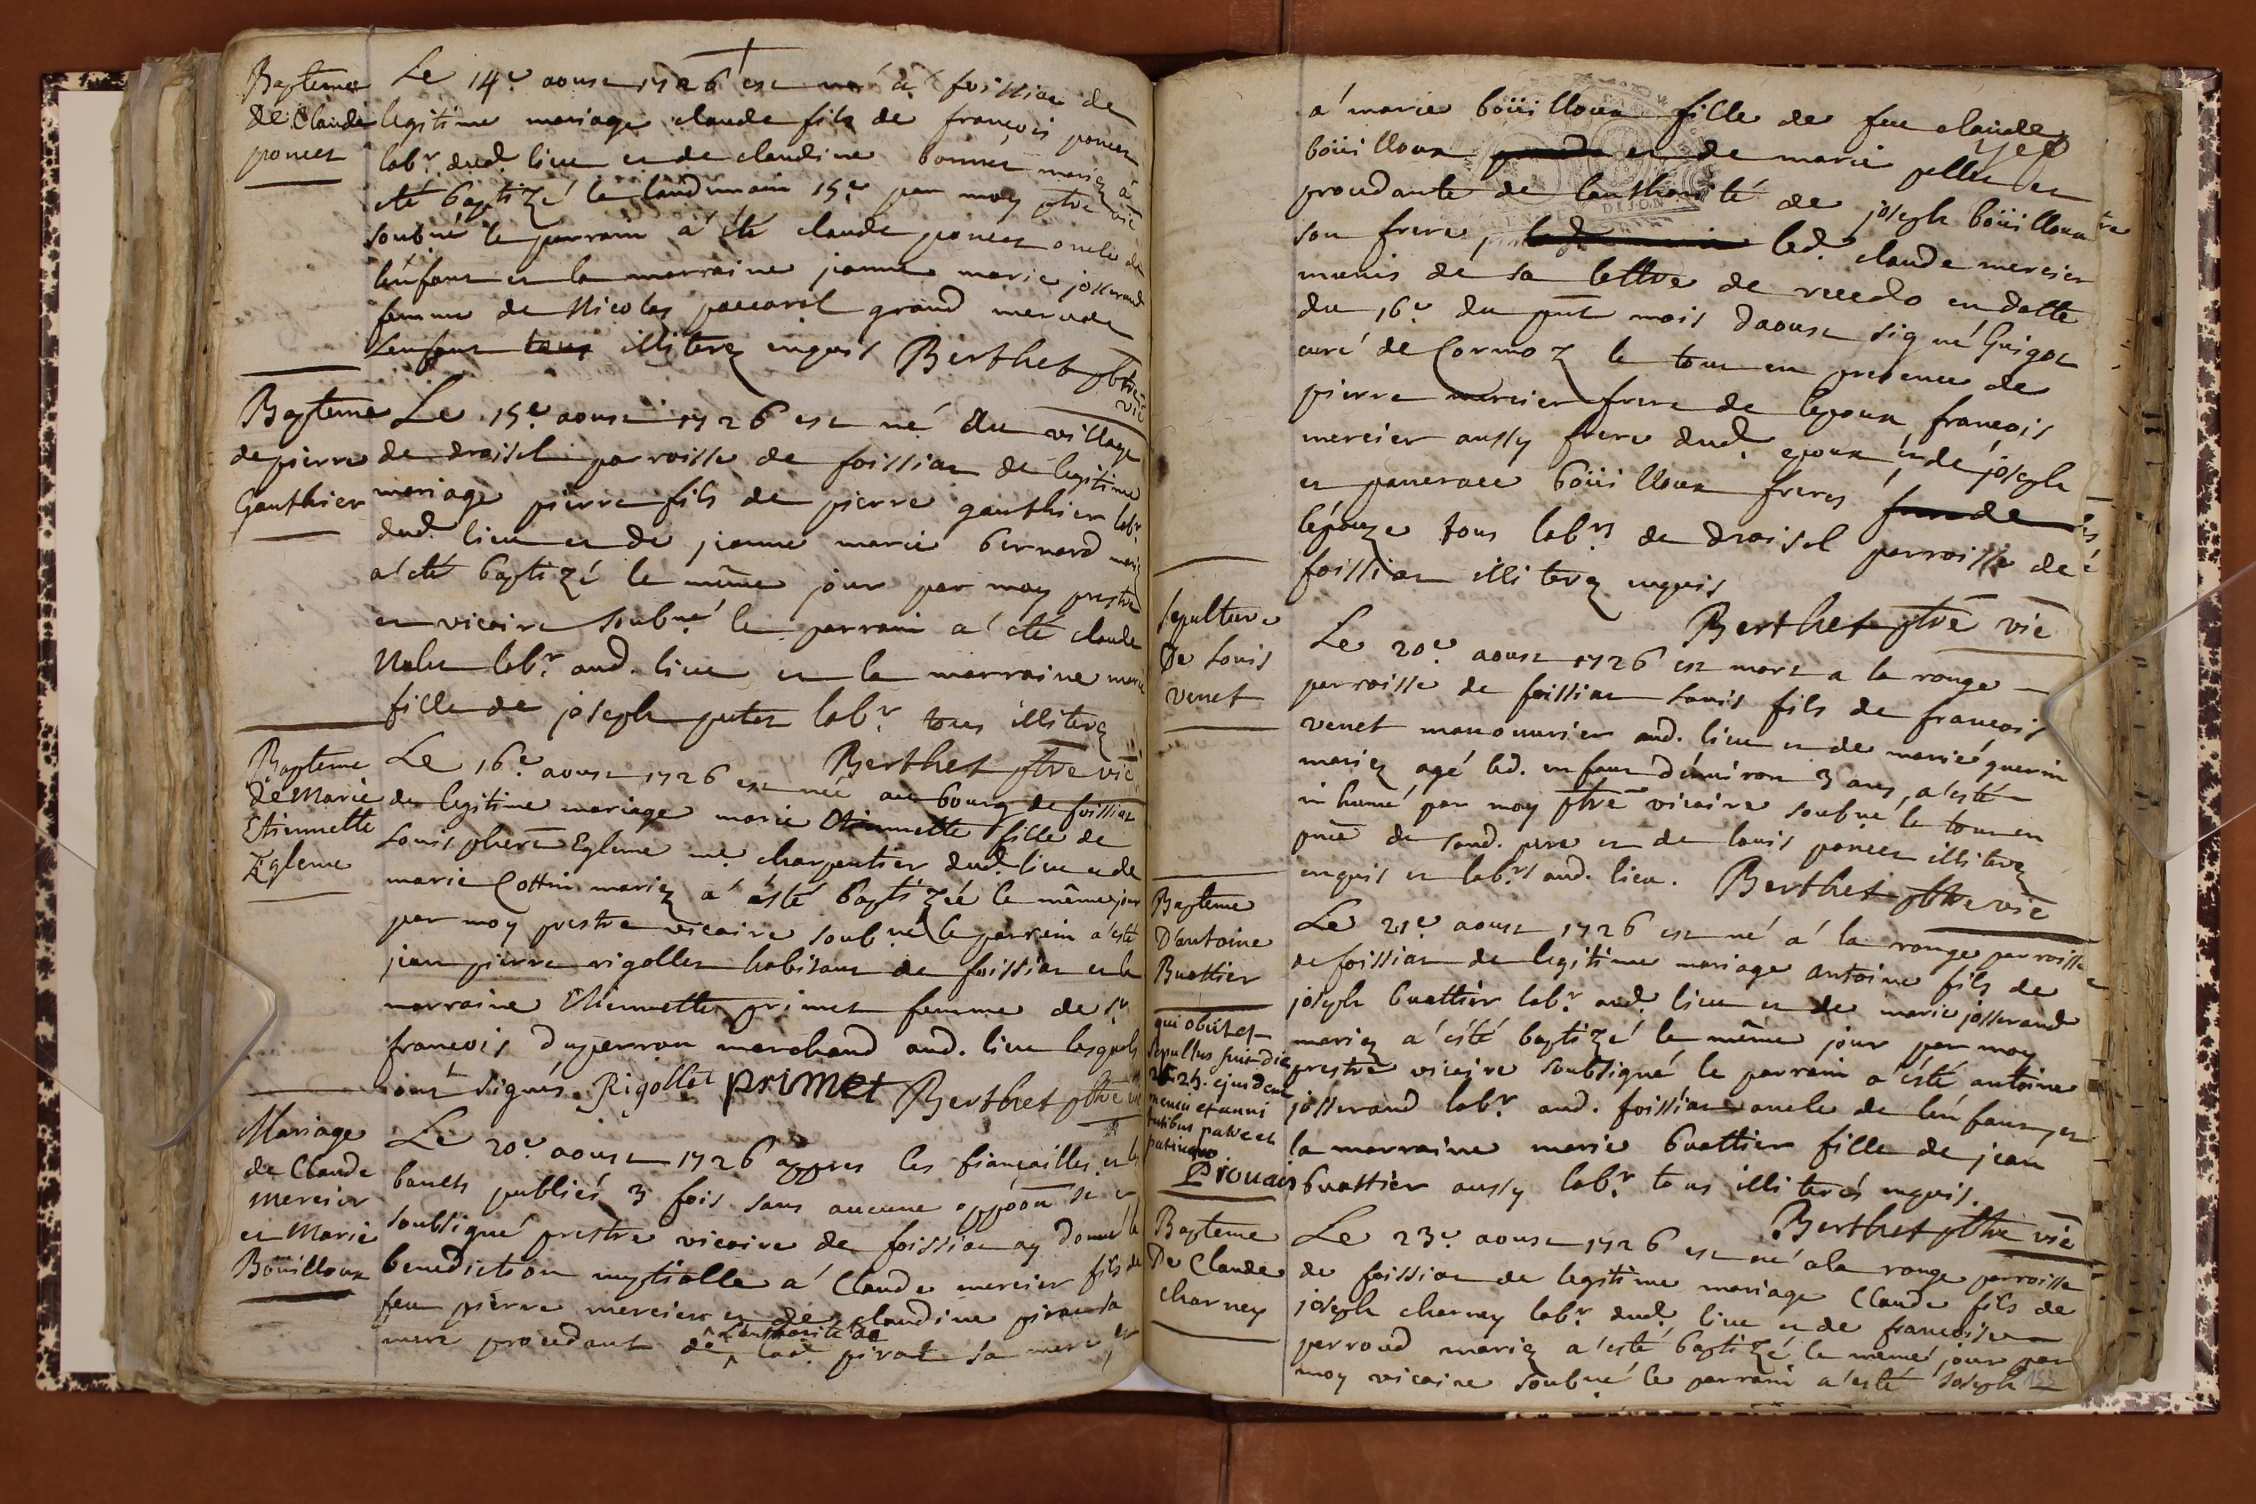 Bapteme
De Claude
poncet
Le 14e aoust 1726 est né a foissiat de
legitime mariage claude fils de françois poncet
labr dud. lieu et de claudine bonnet mariez a
eté baptizé le landemain 15e par moy ptre vic
soubné le parrain a été claude poncet oncle de
lenfant et la marraine jeanne marie josserand
femme de Nicolas paccard grand mere de
Lenfant tous illiterez enquis Berthet ptre vic
Bapteme
de pierre
Gauthier
Le 15e aoust 1726 est né du village
de droisel parroisse de foissiat de legitime
mariage pierre fils de pierre gauthier labr
dud. lieu et de jeanne marie bernard mariez
a été baptizé le même jour par moy prestre
et vicaire soubné le parrain a été claude
labr aud. lieu et la marraine marie
fille de joseph labr tous illiterez
Berthet ptre vic
Bapteme
de Marie
Etiennette
Egleme
Le 16e aoust 1726 est née au bourg de foissiat
de legitime mariage marie Etiennette fille de
Louis Egleme me charpentier dud. lieu et de
marie Cottin mariez a esté baptizée le même jour
par moy prestre vicaire soubné le parrain a esté
jean pierre rigollet habitant de foissiat et la
marraine Etiennette primet femme de sr
françois duperron marchand aud. lieu lesquels
ont signés. Rigollet primet Berthet ptre vic
Mariage
de Claude
Mercier
et Marie
Boüilloux
Le 20e aoust 1726 appres les fiançailles et les
bancts publiés 3 fois sans aucune oppoon je
soubsigné prestre vicaire de foissiat ay donné la
benediction nuptialle a Claude mercier fils de
feu pierre mercier et de claudine pirat sa
mere procedant de l'authorité de lad. pirat sa mere, et
a marie boüilloux fille de feu claude
boüilloux et de marie pellet et
procedante de lauthorité de joseph boüilloux
son frere, led. claude mercier
munis de sa lettre de recedo en datte
du 16e du pnt mois d'aoust signé Guigot
curé de Cormoz le tout en presence de
pierre mercier frere de lepoux françois
mercier aussy frere dud. epoux, et de joseph
et pancrace boüilloux freres de
lépouze tous labrs de droisel parroisse de
foissiat illiterez enquis
Berthet ptre vic
Sepulture
De Louis
venet
Le 20e aoust 1726 est mort a la rouge
parroisse de foissiat Louis fils de françois
venet manouvrier aud. lieu et de marie guerin
mariez, agé led. enfant d'environ 3 ans, a esté
inhumé par moy ptre vicaire soubné le tout en
pnce de sond. pere et de louis poncet illiterez
enquis et labrs aud. lieu. Berthet ptre vic
Bapteme
D'antoine
Buattier
Le 21e aoust 1726 est né a la rouge parroisse
de foissiat de legitime mariage antoine fils de
joseph buattier labr aud. lieu et de marie josserand
mariez a été baptizé le même jour par moy
prestre vicaire soubsigné le parrain a esté antoine
josserand labr aud. foissiat oncle de lenfant, et
la marraine marie buattier fille de jean
buattier aussy labr tous illiterés enquis.
Berthet ptre vic
qui obiit et
sepultus fuit die
25. ejusdem
mensis et anni
patre et
patrino
Prouais
Bapteme
De Claude
charney
Le 23e aoust 1726 est né a la rouge parroisse
de foissiat de legitime mariage Claude fils de
joseph charney labr dud. lieu et de françoise
perroud mariez a esté baptizé le meme jour par
moy vicaire soubné le parrain a esté joseph